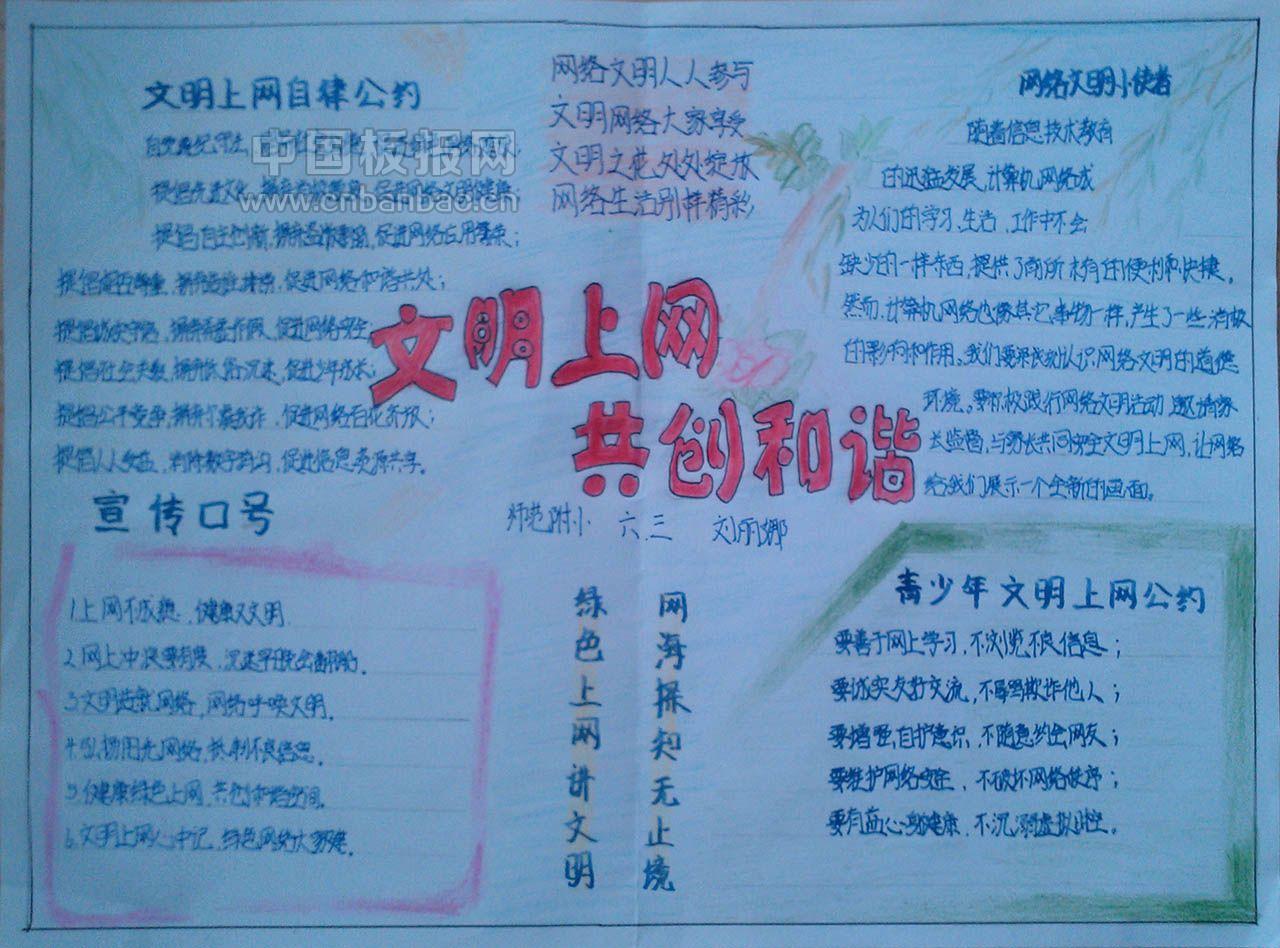 文明上网自律公约
自觉遵纪守法
中国板报网
www.cnbanbao.cn
提倡先进文化，摒弃消极颓废，促进网络文明健康；
提倡自主创新，摒弃盗版剽窃，促进网络应用繁荣；
提倡互相尊重，摒弃造谣诽谤，促进网络和谐共处；
提倡诚实守信，摒弃弄虚作假，促进网络安全；
提倡社会关爱，摒弃低俗沉迷，促进少年成长；
提倡公平竞争，摒弃尔虞我诈，促进网络百花齐放；
提倡人人受益，消除数字鸿沟，促进信息资源共享。
网络文明人人参与
文明网络大家享受
文明之花处处绽放
网络生活别样精彩
网络文明小使者
随着信息技术教育
的迅猛发展，计算机网络成
为人们的学习、生活、工作中不会
缺少的一样东西，提供了前所未有的便利和快捷。
然而，计算机网络也像其它事物一样，产生了一些消极
的影响和作用。我们要来认识网络文明的道德
环境。要积极践行网络文明活动，邀请家
长监督，与家长共同安全文明上网，让网络
给我们展示一个全新的画面。
文明上网
共创和谐
师范附小 六.三 刘丽娜
宣传口号
1.上网不成瘾，健康又文明
2.网上冲浪要有度，
3.文明造就网络，网络呼唤文明。
4.弘扬阳光网络，抵制不良信息。
5.健康绿色上网，共创和谐空间。
6.文明上网心中记，绿色网络大家建。
网海探知无止境
绿色上网讲文明
青少年文明上网公约
要善于网上学习，不浏览不良信息；
要诚实友好交流，不辱骂欺诈他人；
要增强自护意识，不随意约会网友；
要维护网络安全，不破坏网络秩序；
要有益心身健康，不沉溺虚拟时空。